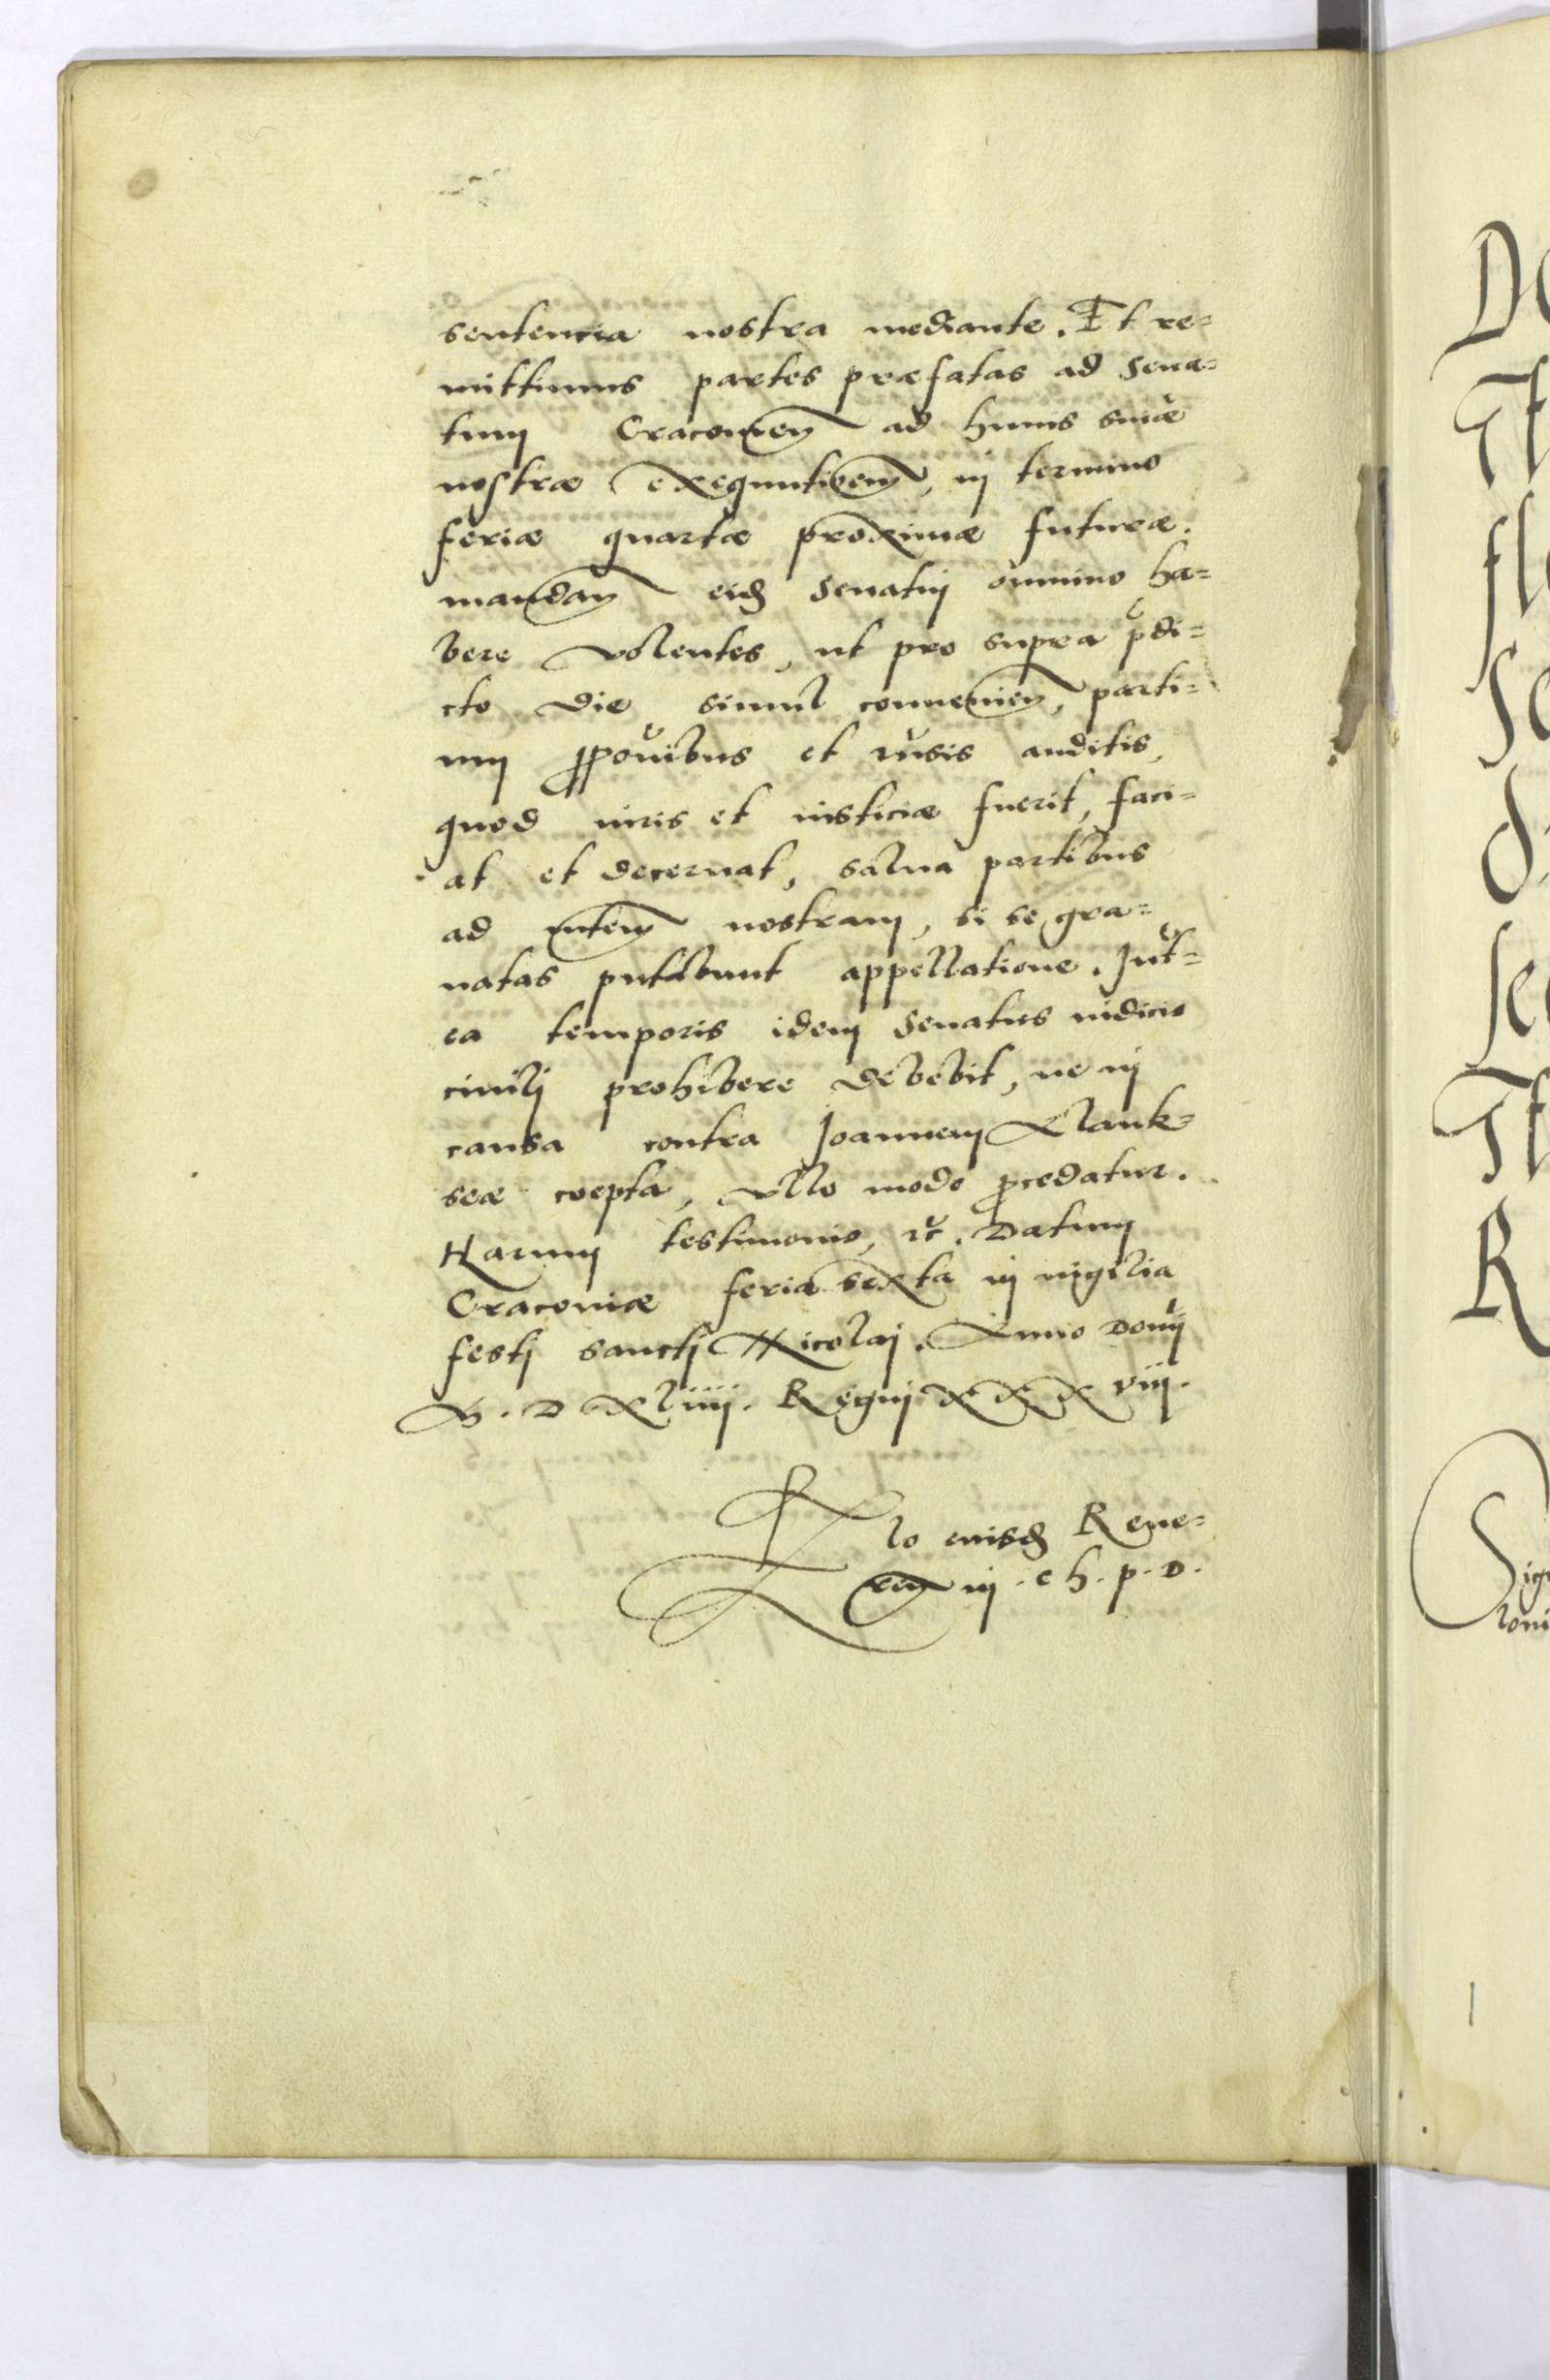 sentencia nostra mediante. Et re=
mittimus partes præfatas ad Sena=
tum Cracovien ad huius sniæ
nostræ exequutionem, in termino
feriæ quartæ proximæ futuræ.
mandan eid Senatui omnino ha=
bere volentes, ut pro supra pdi=
cto die simul convenien, parti=
um ppovibus et iusis auditis,
quod iuris et iusticiæ fuerit, faci=
at et decernat, salva partibus
ad mtem nostram, si se gra=
vatas putabunt appellatione. Int=
ea temporis idem Senatus iudicio
civili prohibere debebit, ne in
causa contra Joannem Klank=
seæ coepta, ullo modo pcedatur.
Harum testimonio, rc. Datum
Cracoviæ feria sexta in vigilia
festi sancti Nicolai. Anno Domi
M. D xliiii. Regni xxxviii.
lo eiusd Reve=
ren in. ch. p. D.
De
St
Se
Se
St
R
Sigi
loni